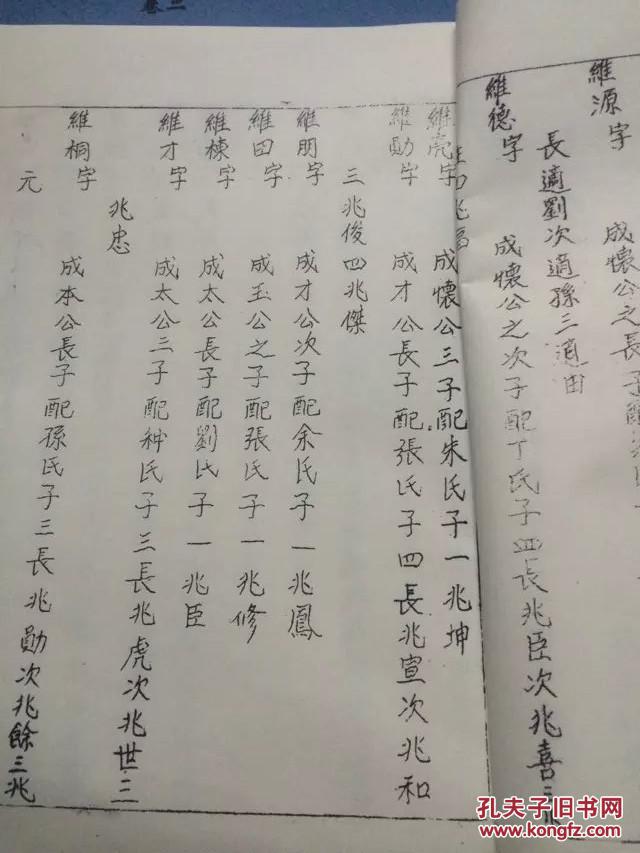 卷三
維源字
成懷公之長子
維德字
長適劉次適孫三適田
成懷公之次子配丁氏子四長兆臣次兆喜三兆
維虎字
成懷公三子配朱氏子一兆坤
維勛字
成才公長子配張氏子四長兆宣次兆和
三兆俊四兆傑
維明字
成才公次子配余氏子一兆鳳
維田字
成玉公之子配張氏子一兆修
維棟字
成太公長子配劉氏子一兆臣
維才字
成太公三子配种氏子三長兆虎次兆世三
兆忠
維桐字
成本公長子配孫氏子三長兆勛次兆餘三兆
元
孔夫子旧书网
www.kongfz.com